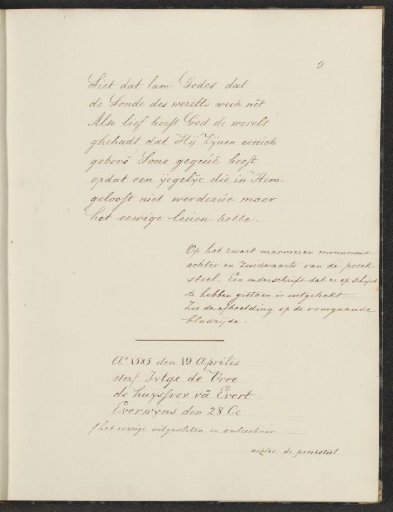 9
Siet dat lam Godes dat
de Sonde des werelts wech nēt
Also lief heeft God de werelt
ghehadt dat Hij Zijnen eenich
geborē Sone gegeuē heeft
opdat een jegelijc die in Hem
gelooft niet werderue maer
het eewige leuen hebbe.
Op het zwart marmeren monument
achter en zuidwaarts van de preek
stoel. Een onderschrift dat er op schijnt
te hebben gestaan is uitgehakt
Zie de afbeelding op de voorgaande
bladzijde.
Ao 1585 den 19 Aprilis
starf Jutge de Vree
de huysfrov vā Evert
Everwijns den 28 Oc
(het overige uitgesleten en onleesbaar
achter de preekstoel